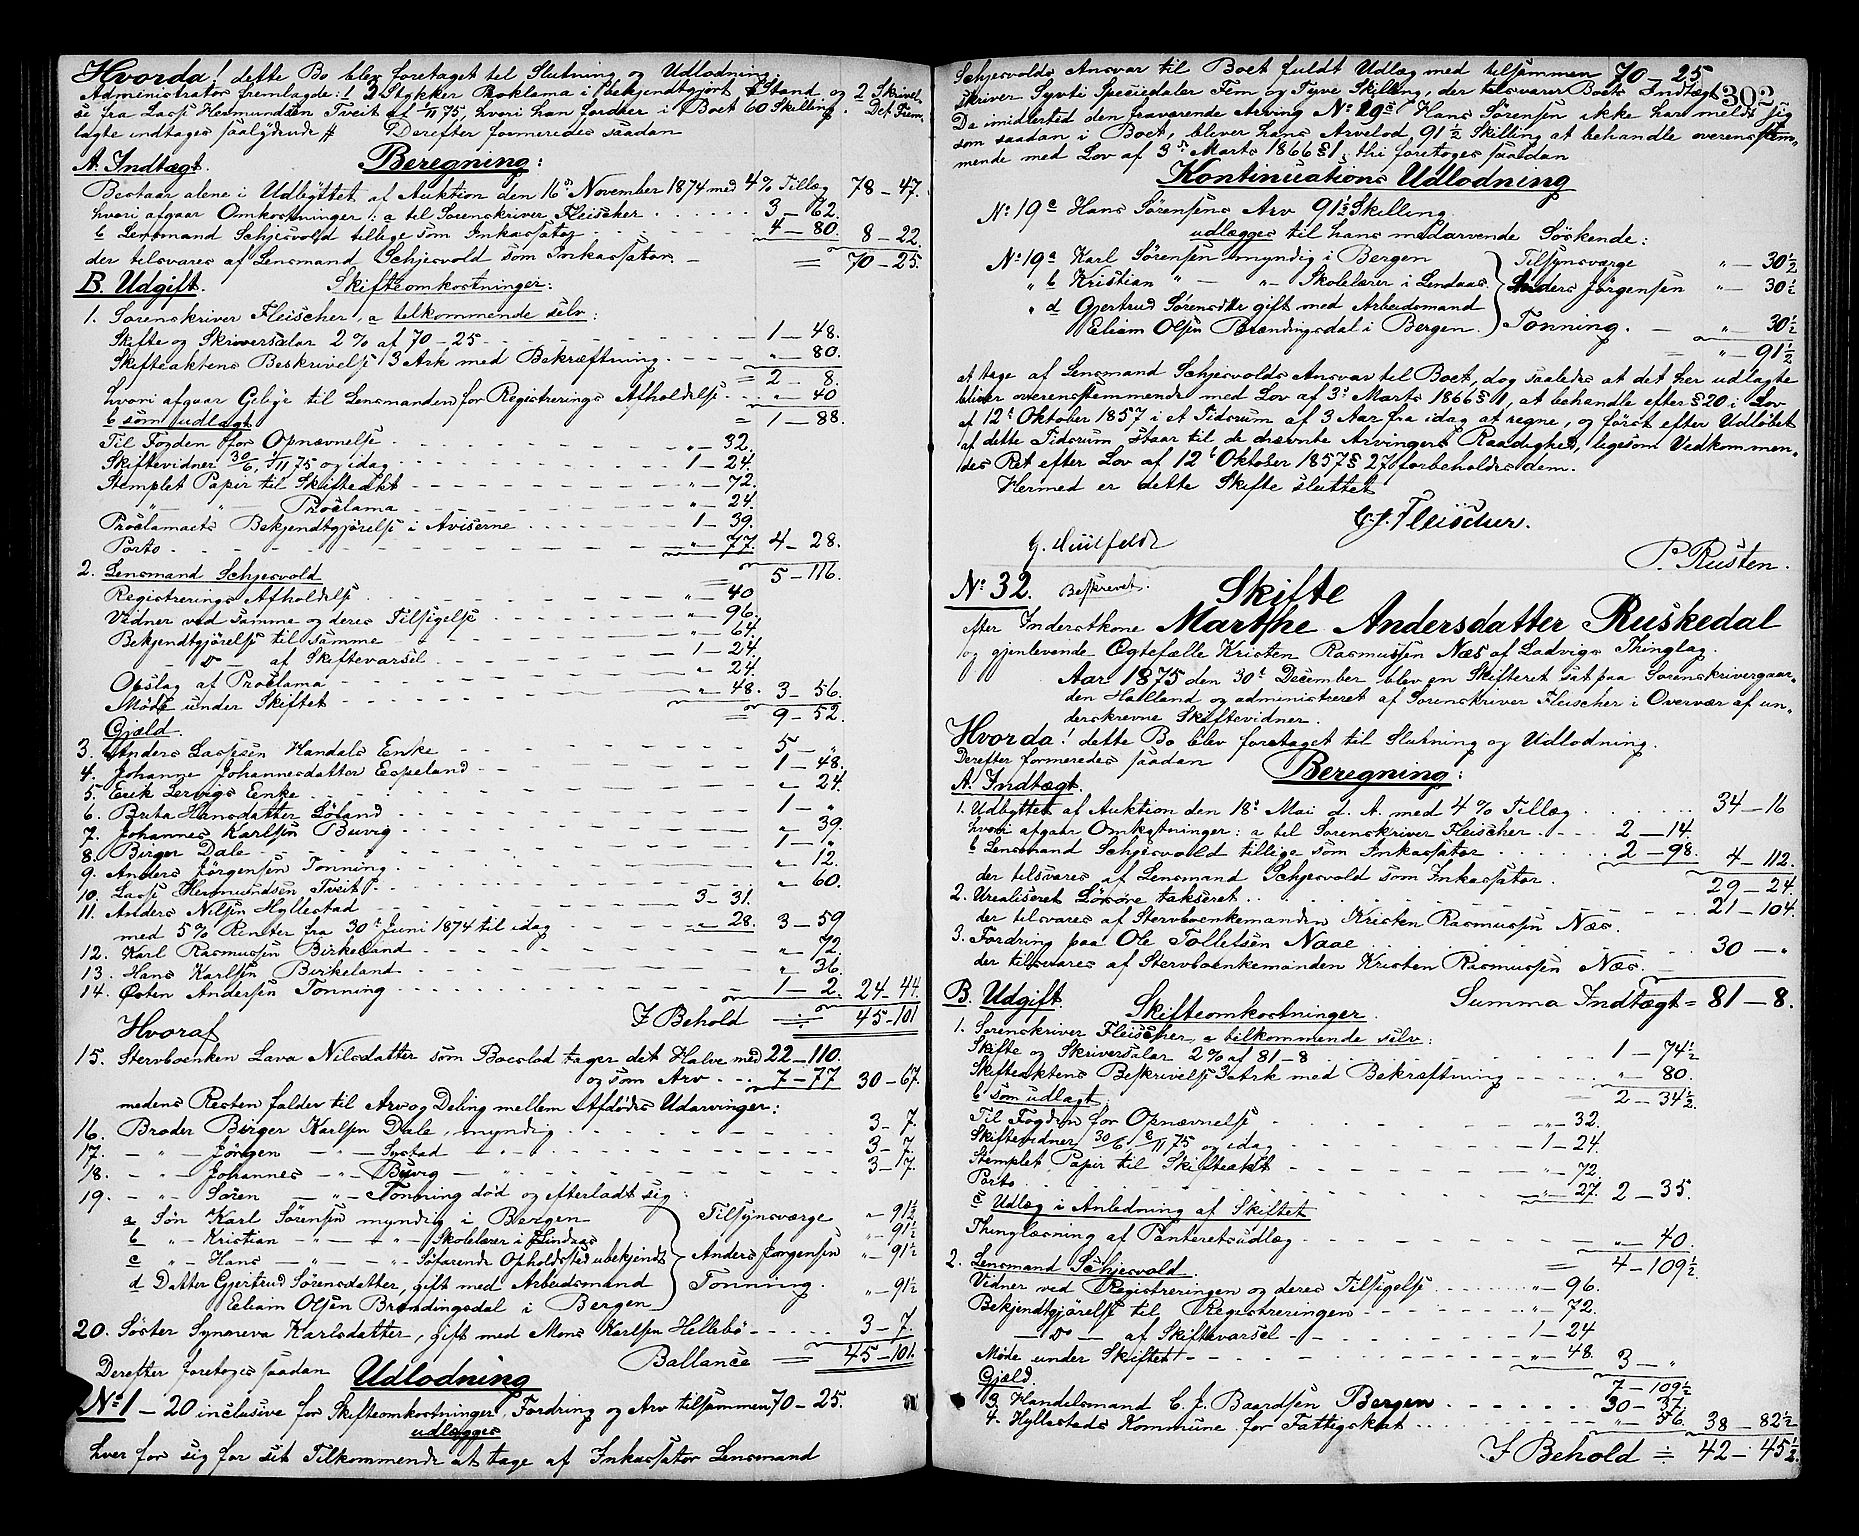 Hvorda! dette Bo blev foretaget til Slutning og Udlodning.
Administrator fremlagde: 1 3 Stykker Proklama i bekjendtgjort Stand og 2 Skrivel-
se fra Lasse Hermundsen Tveit af 1/11 75, hvori han fordrer i Boet 60 Skilling. Det Frem-
lagte indtages saalydende # Derefter formeredes saadan
Beregning:
A. Indtægt.
Bestaar alene i Udbyttet af Auktion den 16de November 1874 med 4% Tillæg 78 - 47.
hvori afgaar Omkostninger: a til Sorenskriver Fleischer 3 - 62.
b Lensmand Schjesvold tillige som Inkassator 4 - 80. 8 - 22.
der tilsvares af Lensmand Schjesvold som Inkassator = 70 - 25.
B. Udgift. Skifteomkostninger:
1. Sorenskriver Fleischer, a tilkommende selv:
Skifte og Skriversalar 2% af 70-25 1 - 48.
Skifteaktens Beskrivelse 3 Ark med Bekræftning " - 80.
= 2 - 8.
hvori afgaar Gebyr til Lensmanden for Registrerings Afholdelse " - 40
b som udlagt = 1 - 88.
Til Fogden for Opnævnelse " - 32.
Skiftevidner 30/6, 1/11 75 og idag 1 - 24.
Stemplet Papir til Skifteakt " - 72.
" - " - Proclama " - 24.
Proclamaets Bekjendtgjörelse i Aviserne 1 - 39.
Porto " - 77. 4 - 28.
5 - 116.
2. Lensmand Schjesvold
Registrerings Afholdelse " - 40
Vidner ved samme og deres Tilsigelse " - 96.
Bekjendtgjörelse til samme " - 64.
- do - af Skiftevarsel 1 - 24.
Opslag af Proclama " - 24.
Möde under Skiftet " - 48. 3 - 56.
= 9 - 52.
Gjæld.
3. Anders Lassesen Handals Enke 5 - "
4. Johanne Johannesdatter Espeland 1 - 48.
5. Erik Lervigs Enke " 24.
6. Brita Hansdatter Löland 1 - "
7. Johannes Karlsen Buvig " 39.
8. Birger Dale 1 - "
9. Anders Jörgensen Tonning " 12.
10. Lasse Hermundsen Tveit " 60.
11. Anders Nilsen Hyllestad 3 - 31.
med 5% Renter fra 30te Juni 1874 til idag " 28. 3 - 59
12. Karl Rasmussen Birkeland " 72.
13. Hans Karlsen Birkeland " 36.
14. Østen Andersen Tonning 1 - 2. 24 - 44.
Hvoraf I Behold 45 - 101
15. Stervboenken Lava Nilsdatter som Boeslod tager det Halve med 22 - 110.
og som Arv 7 - 77 30 - 67.
medens Resten falder til Arv og Deling mellem Afdödes Udarvinger:
16. Broder Birger Karlsen Dale, myndig 3 - 7.
17. - " - Jörgen - " - Systad - " - 3 - 7.
18. - " - Johannes - " - Buvig - " - 3 - 7.
19. - " - Sören - " - Tonning död og efterladt sig:
a Sön Karl Sörensen myndig i Bergen Tilsynsværge " - 91½
b " - Kristian - " - " - Skolelærer i Lindaas " - 91½
c " - Hans - " - " - Söfarende Opholdsted ubekjendt Anders Jörgensen " - 91½
d Datter Gjertrud Sörensdatter, gift med Arbeidsmand Tonning. " - 91½
Eliam Olsen Brændingsdal i Bergen
20. Söster Synneva Karlsdatter, gift med Mons Karlsen Hellebö 3 - 7
Ballance = 45 - 101.
Derefter foretoges saadan Udlodning
No 1 - 20 inclusive for Skifteomkostninger, Fordring og Arv tilsammen 70 - 25.
udlægges
hver for sig for sit Tilkommende at tage af Inkassator Lensmand
302
Schjesvolds Ansvar til Boet fuldt Udlæg med tilsammen 70 - 25
skriver Sytti Speciedaler Fem og Tyve Skilling, der tilsvarer Boets Indtægt.
Da imidlertid den fraværende Arving No 19c Hans Sörensen ikke har meldt sig
som saadan i Boet, bliver hans Arvelod 91½ Skilling at behandle overensstem-
mende med Lov af 3de Marts 1866 § 1, thi foretoges saadan
Kontinuations Udlodning
No 19c Hans Sörensens Arv 91½ Skilling
udlægges til hans medarvende Söskende:
No 19a Karl Sörensen myndig i Bergen Tilsynsværge " - 30½
" b Kristian " - " - Skolelærer i Lindaas Anders Jörgensen " - 30½
" d Gjertrud Sörensdtr gift med Arbeidsmand
Eliam Olsen Brændingsdal i Bergen. Tonning. " - 30½
= " - 91½
at tage af Lensmand Schjesvolds Ansvar til Boet, dog saaledes at det her udlagte
bliver overensstemmende med Lov af 3de Marts 1866 § 1, at behandle efter § 20 i Lov
af 12te Oktober 1857 i et Tidsrum af 3 Aar fra idag at regne, og först efter Udlöbet
af dette Tidsrum staar til de nævnte Arvingers Raadighed, ligesom Vedkommen-
des Ret efter Lov af 12te Oktober 1857 § 27 forbeholdes dem.
Hermed er dette Skifte sluttet
C. J. Fleischer.
P. Rusten.
No 32. Beskrevet. Skifte
efter Inderstkone Marthe Andersdatter Ruskedal
og gjenlevende Ægtefælle Kristen Rasmussen Næs af Ladvigs Thinglag.
Aar 1875 den 30te December blev en Skifteret sat paa Sorenskrivergaar-
den Halland og administreret af Sorenskriver Fleischer i Overvær af un-
derskrevne Skiftevidner.
Hvorda! dette Bo blev foretaget til Slutning og Udlodning.
Derefter formeredes saadan Beregning:
A. Indtægt.
1. Udbyttet af Auktion den 18de Mai d. A. med 4% Tillæg 34 - 16
hvori afgaar Omkostninger: a til Sorenskriver Fleischer 2 - 14.
b Lensmand Schjesvold tillige som Inkassator 2 - 98. 4 - 112.
der tilsvares af Lensmand Schjesvold som Inkassator. 29 - 24.
2. Urealiseret Lösöre takseret 21 - 104.
der tilsvares af Stervboenkemanden Kristen Rasmussen Næs.
3. Fordring paa Ole Tollefsen Naae 30 - "
der tilsvares af Stervboenkemanden Kristen Rasmussen Næs.
Summa Indtægt = 81 - 8.
B. Udgift. Skifteomkostninger.
1. Sorenskriver Fleischer, a tilkommende selv:
Skifte og Skriversalar 2% af 81-8 1 - 74½
Skifteaktens Beskrivelse 3 Ark med Bekræftning " 80.
b som udlagt 2 - 34½.
Til Fogden for Opnævnelse " - 32.
Skiftevidner 30/6 2/11 75 og idag 1 - 24.
Stemplet Papir til Skifteakt " 72
Porto " 27. 2 - 35.
c Udlæg i Anledning af Skiftet
Thinglæsning af Panteretsudlæg " - 40.
= 4 - 109½
2. Lensmand Schjesvold
Vidner ved Registreringen og deres Tilsigelse " - 96.
Bekjendtgjörelse til Registreringen " - 72.
- do - af Skiftevarsel 1 - 24
Möde under Skiftet " - 48. 3 - "
Gjæld. 7 - 109½
3. Handelsmand C. J. Baardsen Bergen 30 - 37.
4. Hyllestads Kommune for Fattigskat " - 56. 38 - 82½
I Behold 42 - 45½.